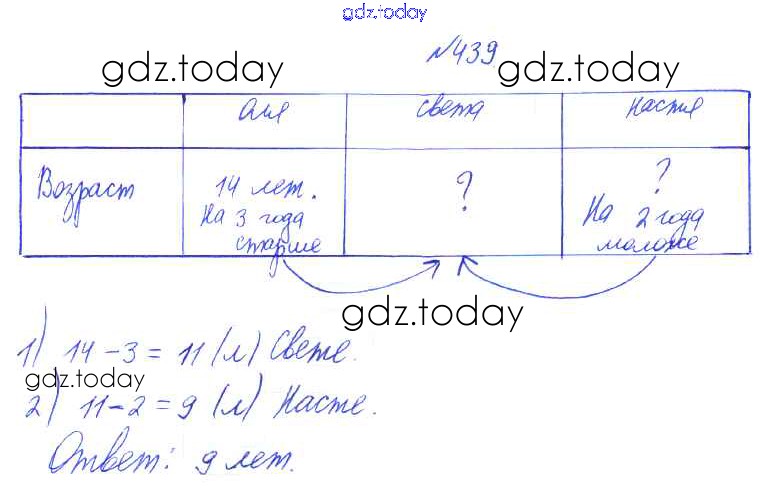 gdz.today
№439
gdz.today gdz.today
Аня Света Настя
Возраст 14 лет. ? ?
На 3 года На 2 года
старше моложе
gdz.today
1) 14-3=11 (л) Свете.
gdz.today
2) 11-2=9 (л) Насте.
Ответ: 9 лет.